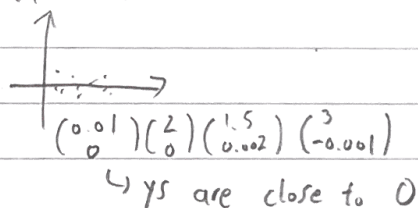 (0.01 0) (2 0) (1.5 0.002) (3 -0.001)
↳ ys are close to 0